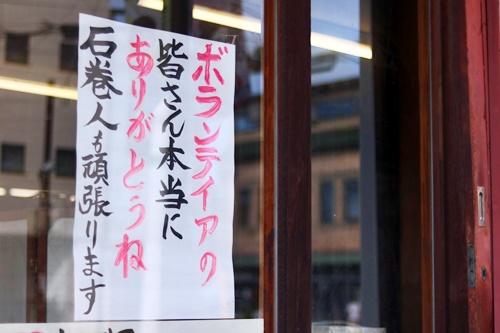 ボランテイアの
皆さん本当に
ありがとうね
石巻人も頑張ります